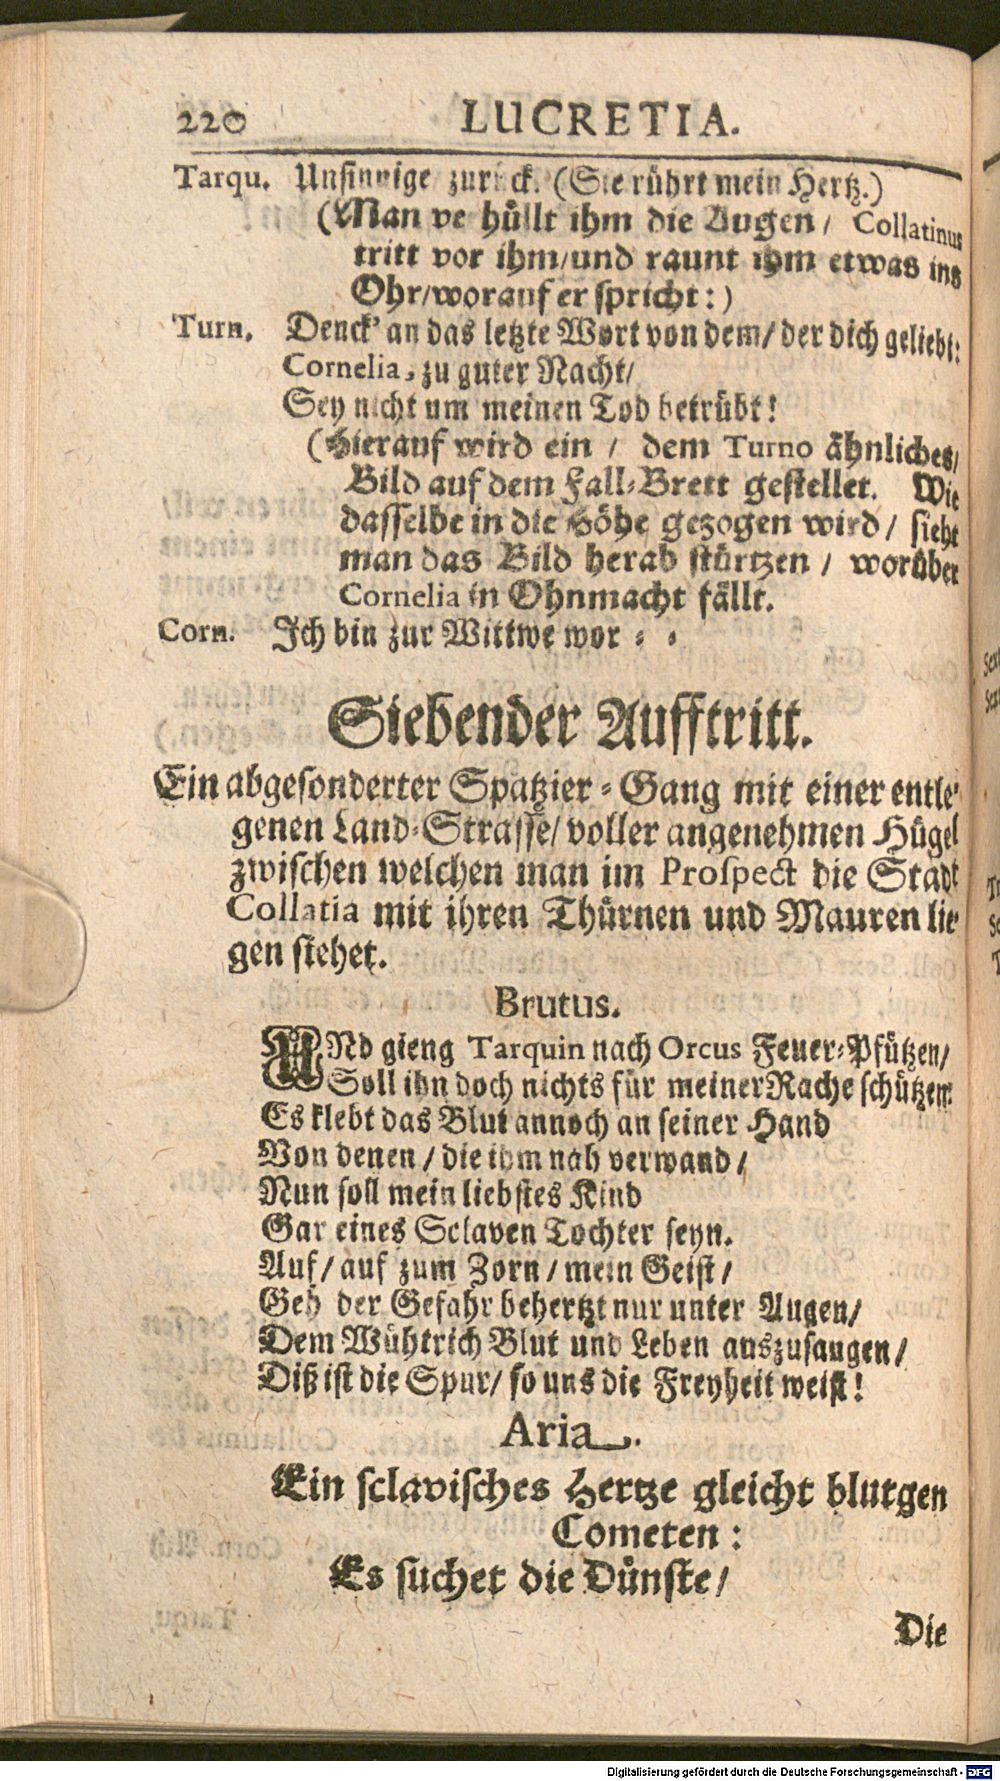 220 LUCRETIA.
Tarqu. Unsinnige zurück. (Sie rührt mein Hertz.)
(Man verhüllt ihm die Augen / Collatinus
tritt vor ihm/und raunt ihm etwas ins
Ohr/worauf er spricht:)
Turn. Denck' an das letzte Wort von dem/ der dich geliebt:
Cornelia, zu guter Nacht/
Sey nicht um meinen Tod betrübt!
(Hierauf wird ein / dem Turno ähnliches/
Bild auf dem Fall-Brett gestellet. Wie
dasselbe in die Höhe gezogen wird/ sieht
man das Bild herab stürtzen / worüber
Cornelia in Ohnmacht fällt.
Corn. Ich bin zur Wittwe wor - -
Siebender Aufftritt.
Ein abgesonderter Spatzier-Gang mit einer entle-
genen Land-Strasse/ voller angenehmen Hügel
zwischen welchen man im Prospect die Stadt
Collatia mit ihren Thürnen und Mauren lie-
gen siehet.
Brutus.
UNd gieng Tarquin nach Orcus Feuer-Pfützen/
Soll ihn doch nichts für meiner Rache schützen:
Es klebt das Blut annoch an seiner Hand
Von denen / die ihm nah verwand/
Nun soll mein liebstes Kind
Gar eines Sclaven Tochter seyn.
Auf/ auf zum Zorn / mein Geist /
Geh der Gefahr behertzt nur unter Augen/
Dem Wühtrich Blut und Leben auszusaugen/
Diß ist die Spur/ so uns die Freyheit weist!
Aria.
Ein sclavisches Hertze gleicht blutgen
Cometen:
Es suchet die Dünste/
Die
Digitalisierung gefördert durch die Deutsche Forschungsgemeinschaft - DFG